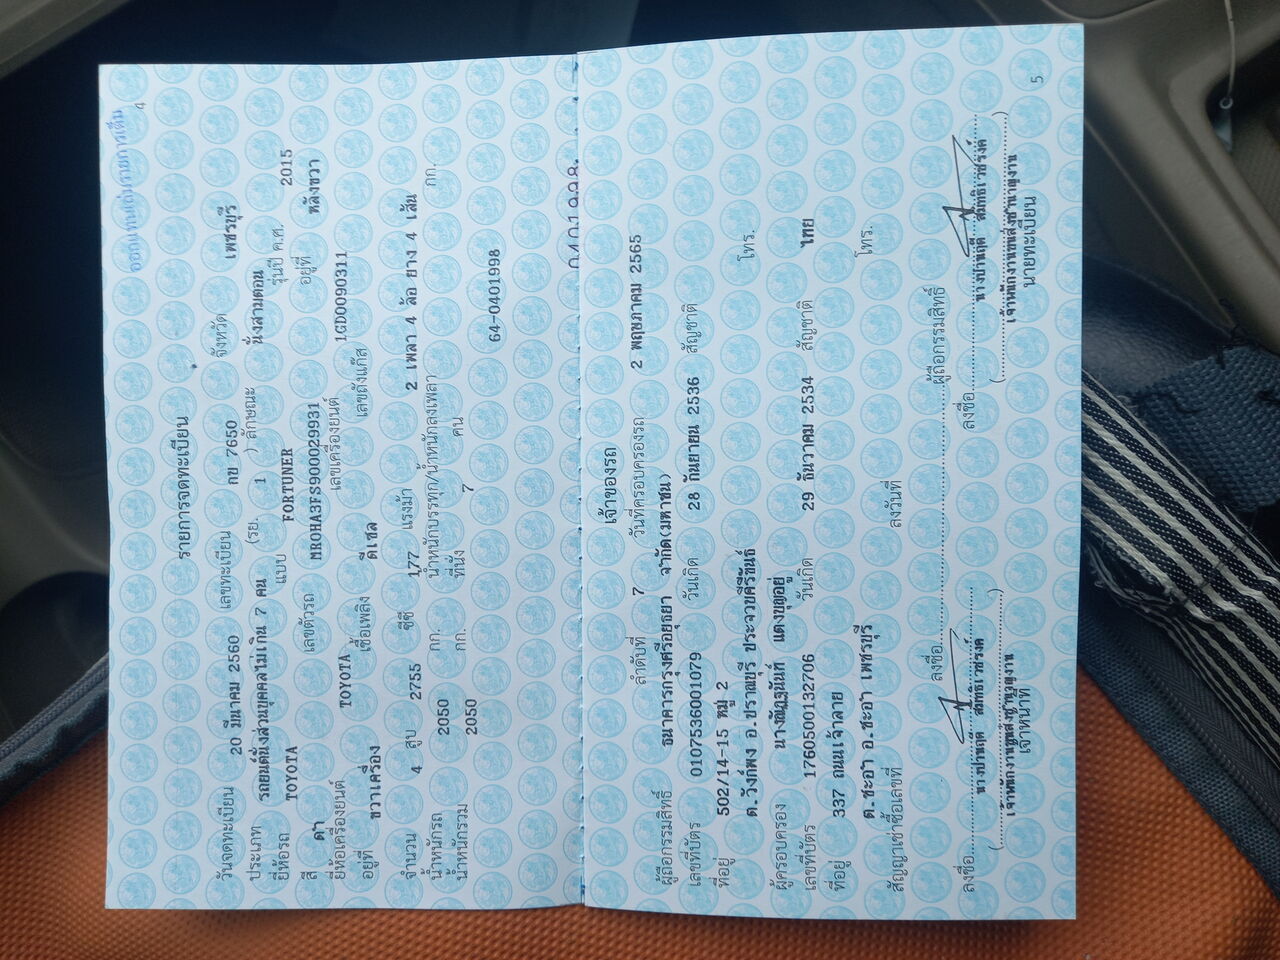 4
ออกแทนเล่มรายการเต็ม
รายการจดทะเบียน
วันจดทะเบียน 20 มีนาคม 2560 เลขทะเบียน กข 7650 จังหวัด เพชรบุรี
ประเภท รถยนต์นั่งส่วนบุคคลไม่เกิน 7 คน (รย. 1 ) ลักษณะ นั่งสามตอน
ยี่ห้อรถ TOYOTA แบบ FORTUNER รุ่นปี ค.ศ. 2015
สี ดำ เลขตัวรถ MR0HA3FS900029931 อยู่ที่ หลังขวา
ยี่ห้อเครื่องยนต์ TOYOTA เลขเครื่องยนต์ 1GD0090311
อยู่ที่ ขวาเครื่อง เชื้อเพลิง ดีเซล เลขถังแก๊ส
จำนวน 4 สูบ 2755 ซีซี 177 แรงม้า 2 เพลา 4 ล้อ ยาง 4 เส้น
น้ำหนักรถ 2050 กก. น้ำหนักบรรทุก/น้ำหนักลงเพลา กก.
น้ำหนักรวม 2050 กก. ที่นั่ง 7 คน
64-0401998
0401998.
เจ้าของรถ
ลำดับที่ 7 วันที่ครอบครองรถ 2 พฤษภาคม 2565
ผู้ถือกรรมสิทธิ์ ธนาคารกรุงศรีอยุธยา จำกัด(มหาชน)
เลขที่บัตร 0107536001079 วันเกิด 28 กันยายน 2536 สัญชาติ
ที่อยู่ 502/14-15 หมู่ 2
ต.วังก์พง อ.ปราณบุรี ประจวบคีรีขันธ์ โทร.
ผู้ครอบครอง นางณัฏฐนันท์ แดงบุญอยู่
เลขที่บัตร 1760500132706 วันเกิด 29 ธันวาคม 2534 สัญชาติ ไทย
ที่อยู่ 337 ถนนเจ้าลาย
ต.ชะอำ อ.ชะอำ เพชรบุรี โทร.
สัญญาเช่าซื้อเลขที่ ลงวันที่
ลงชื่อ ผู้ถือกรรมสิทธิ์
ลงชื่อ ลงชื่อ
เจ้าพนักงานขนส่งชำนาญงาน เจ้าพนักงานขนส่งชำนาญงาน
เจ้าหน้าที่ นายทะเบียน
5